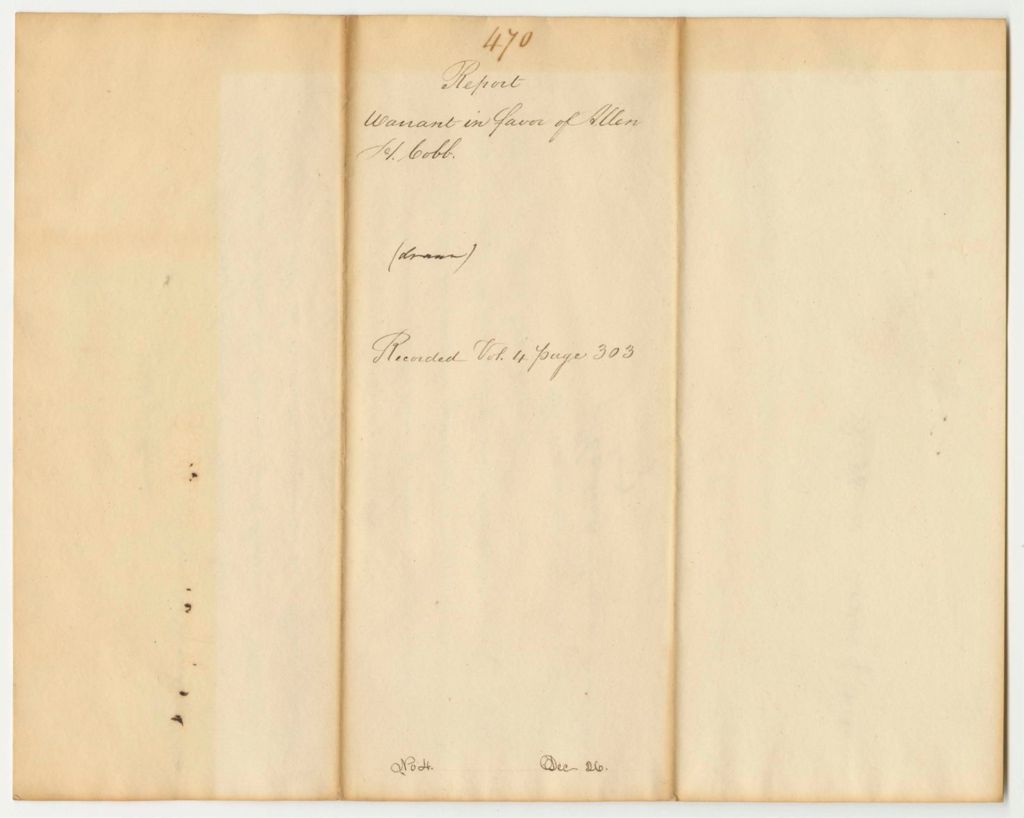 470
Report
Warrant in favor of Allen
H. Cobb.
(drawn)
Recorded Vol. 4 page 303
No 4. Dec 26.